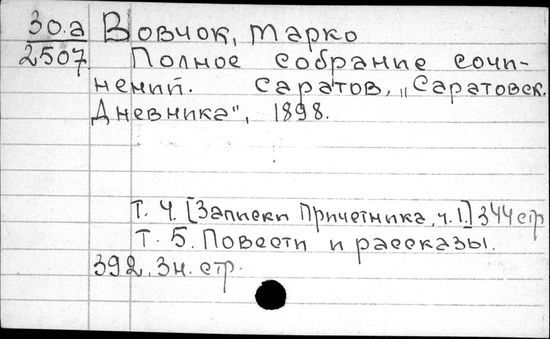 30.а Вовчок, Марко
2507 Полное собрание сочи-
нений. Саратов, „Саратовск.
Дневника", 1898.
Т. 4. [Записки Причетника, ч. 1.] 344 стр
Т. 5. Повести и рассказы.
392, 3 н. стр.